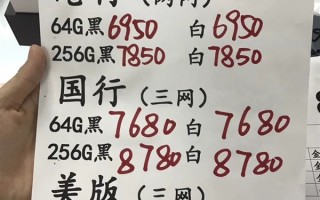 64G黑6950 白6950
256G黑7850 白7850
国行(三网)
64G黑7680白7680
256G黑8780白8780
美版(三网)